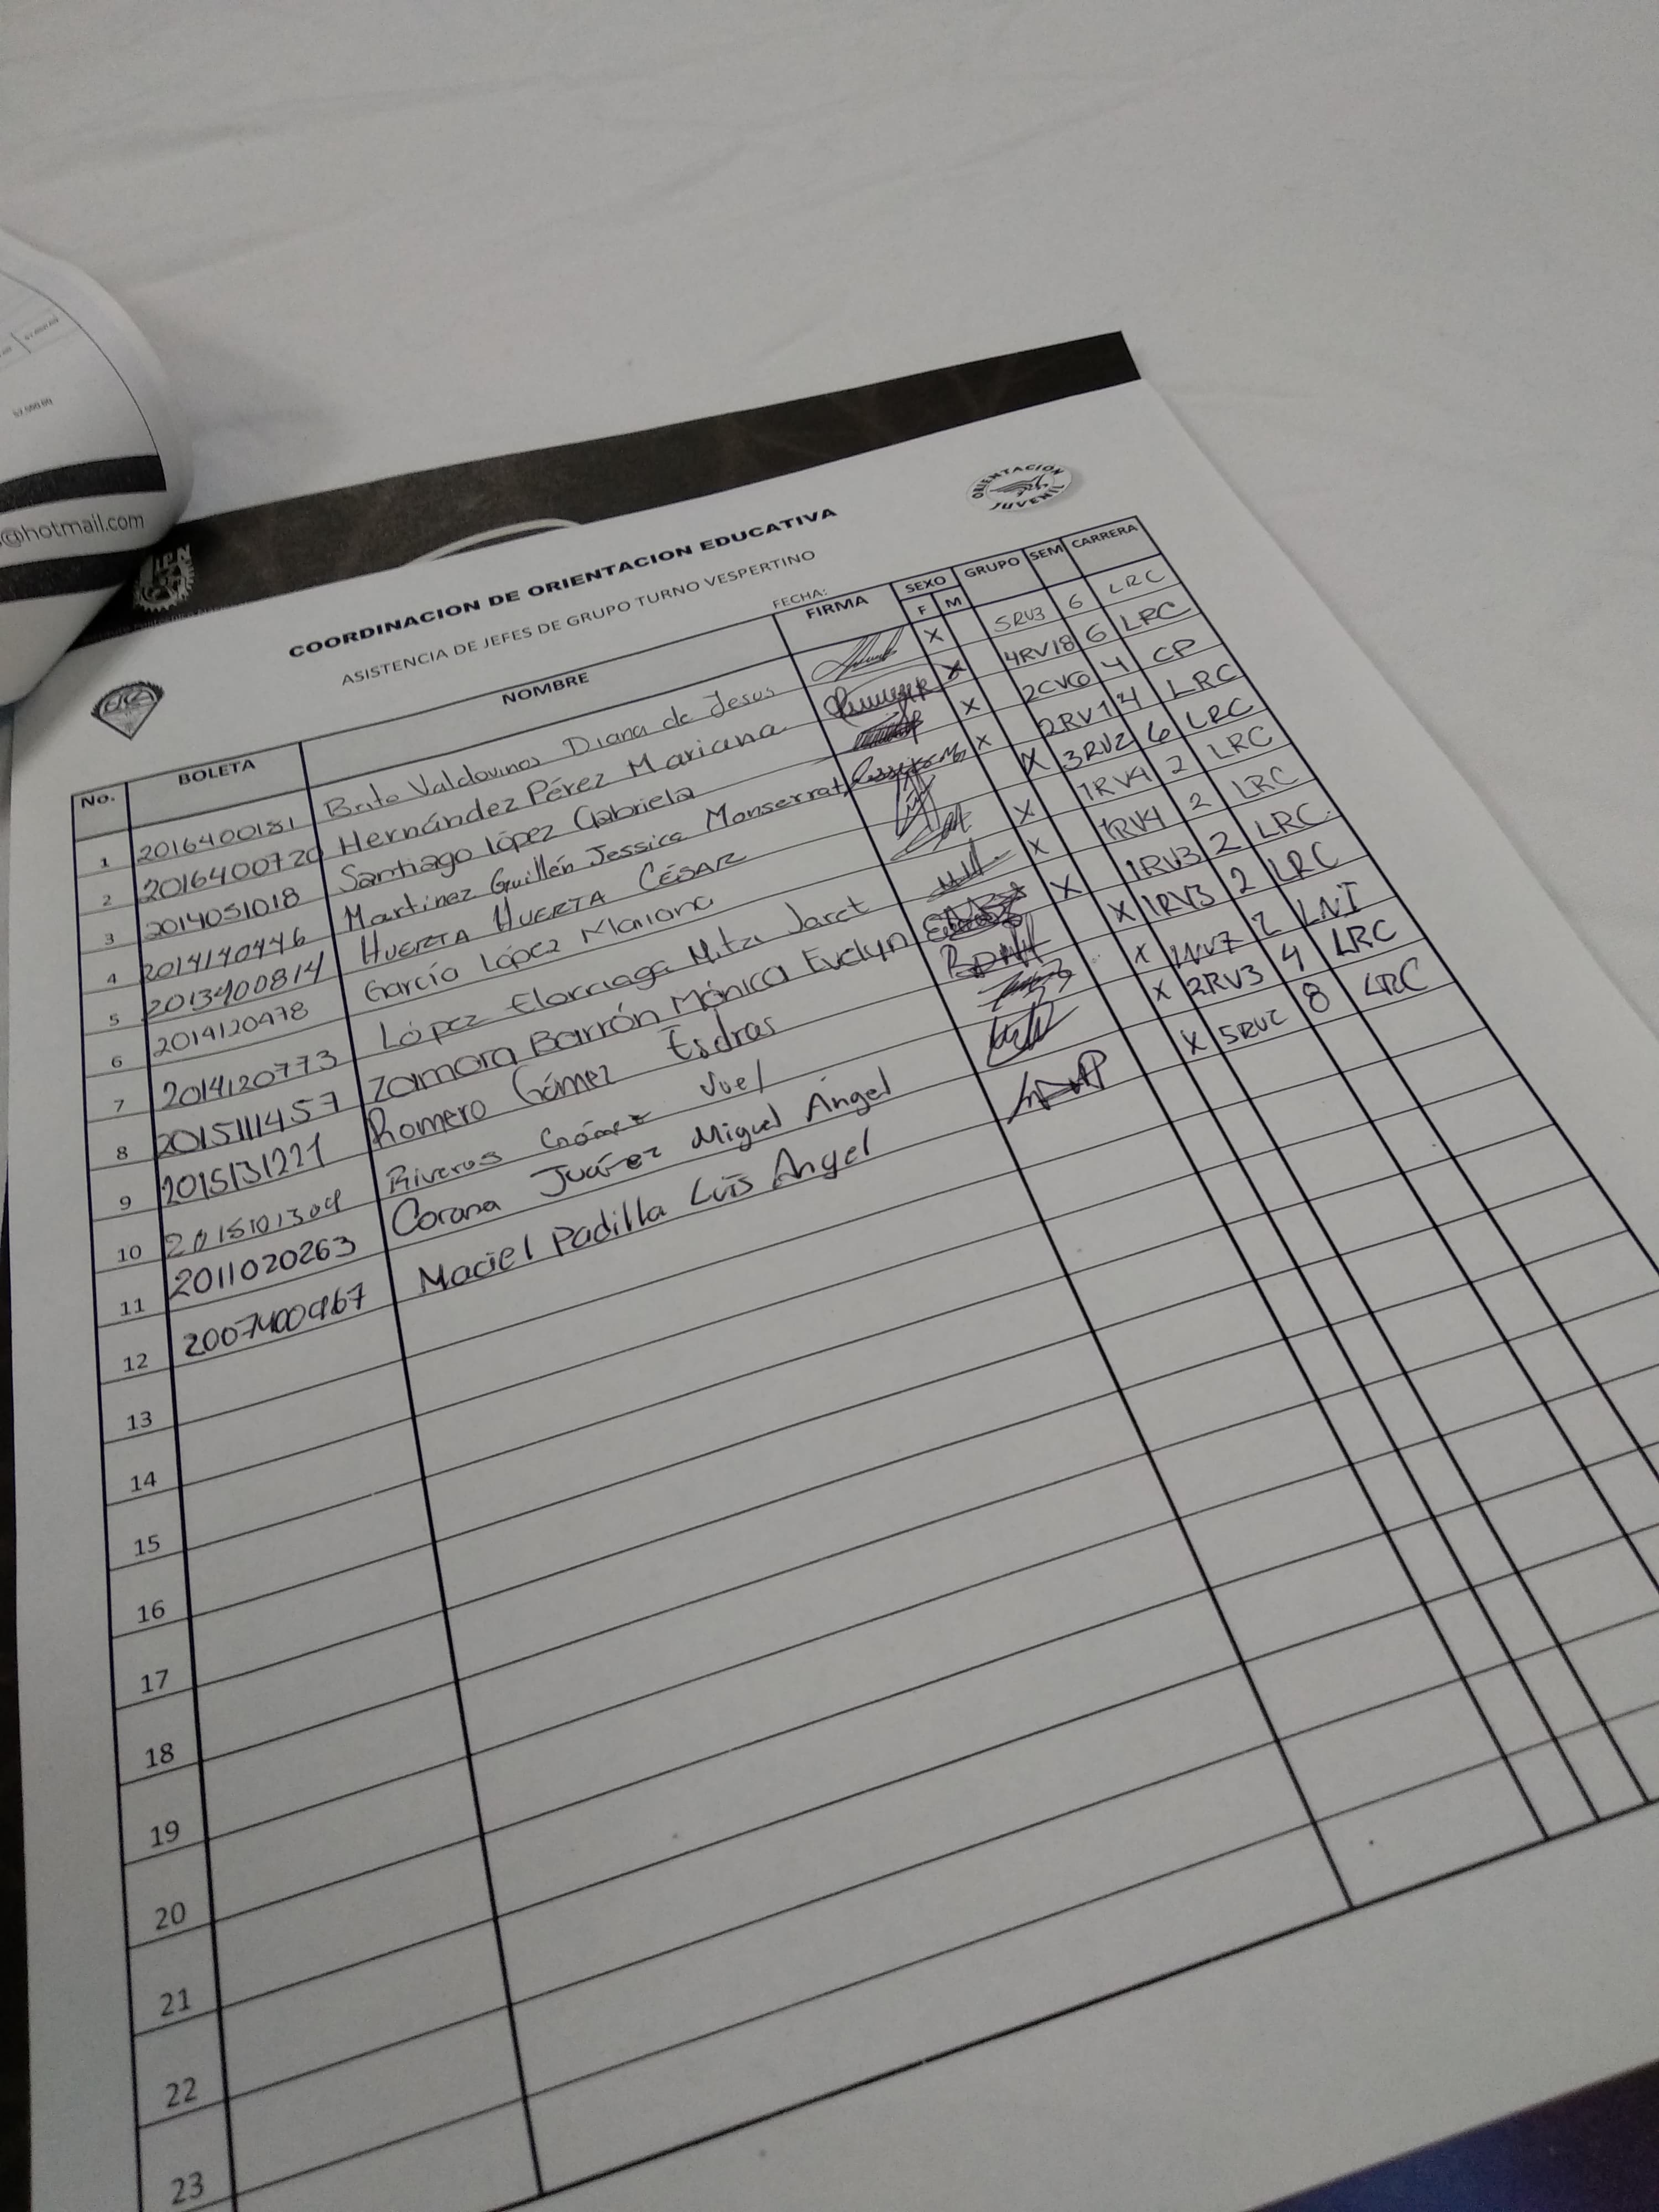 $2,000.00
@hotmail.com
IPN
ORIENTACIÓN
JUVENIL
COORDINACION DE ORIENTACION EDUCATIVA
ASISTENCIA DE JEFES DE GRUPO TURNO VESPERTINO
FECHA:
No. BOLETA NOMBRE FIRMA SEXO F M GRUPO SEM CARRERA
1 2016400181 Valdovinos Diana de Jesus X 5RV3 6 LRC
2 2016400720 Hernández Pérez Mariana X 4RV18 6 LRC
3 2014051018 Santiago López Gabriela X 2CV6 4 CP
4 2014140446 Martinez Guillén Jessica Monserrat X 2RV1 4 LRC
5 2013400814 HUERTA HUERTA CÉSAR X 3RV2 6 LRC
6 2014120978 García López Mariana X 1RV4 2 LRC
7 2014120773 López Elorriaga Mitzi Jaret X 1RV4 2 LRC
8 2015111457 Zamora Barrón Mónica Evelyn X 1RV3 2 LRC
9 2015131221 Romero Gómez Esdras X 1RV3 2 LRC
10 2015101304 Riveros Gómez X 2 LNI
11 2011020263 Corona Juárez Miguel Ángel X 2RV3 4 LRC
12 Maciel Padilla Luis Angel X 5RV2 8 LRC
13
14
15
16
17
18
19
20
21
22
23